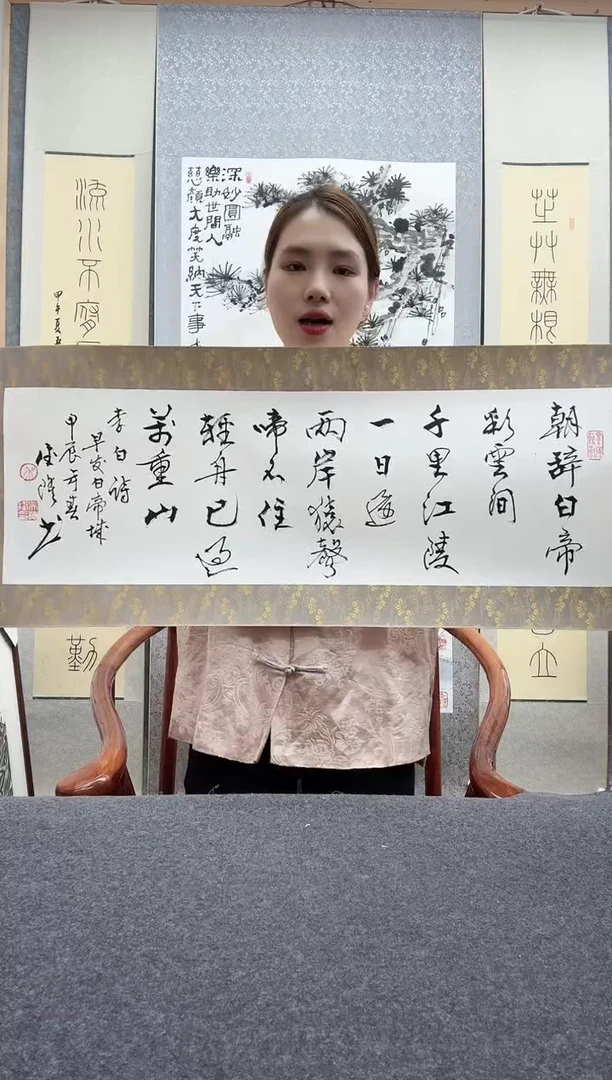 朝辭白帝
彩雲間
千里江陵
一日還
兩岸猿聲
啼不住
輕舟已過
萬重山
李白詩
早发白帝城
甲辰年春
深妙圓融
樂助世間人
慈顏大度笑納天下事
流水不腐
甲午夏
勤
芝艸無根